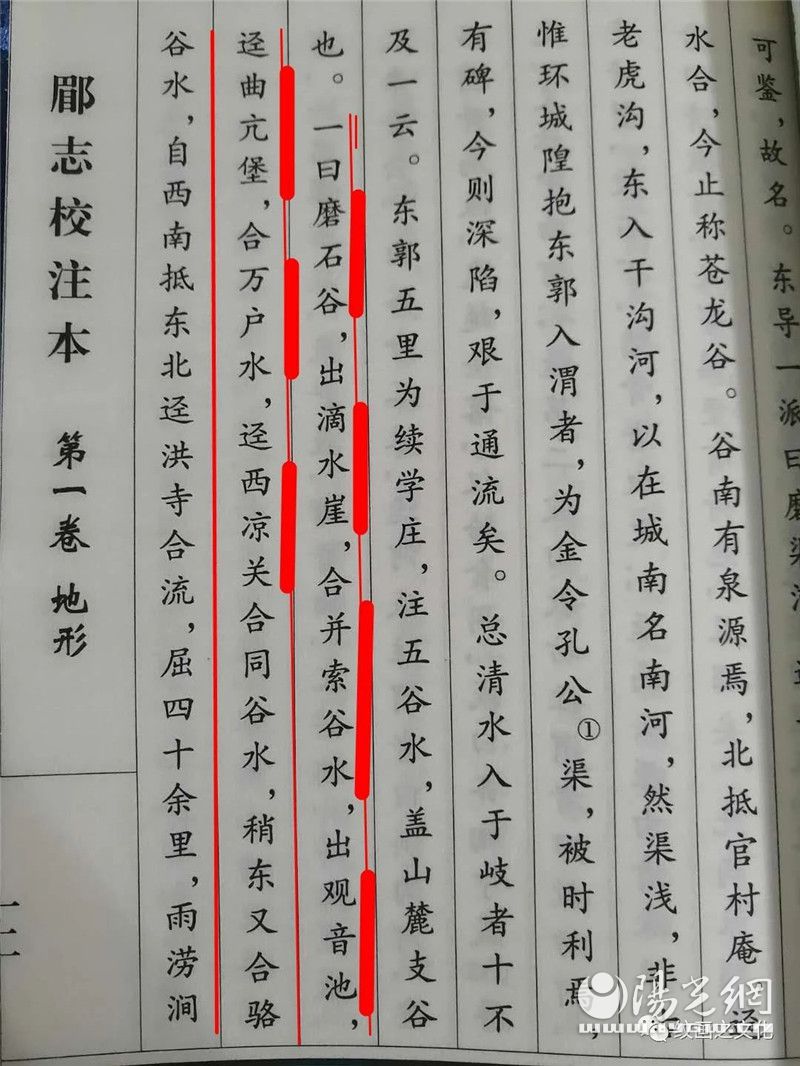 可鉴，故名。东导一派曰磨渠
水合，今止称苍龙谷。谷南有泉源焉，北抵官村庵迳
老虎沟，东入干沟河，以在城南名南河，然渠浅，非
惟环城隍抱东郭入渭者，为金令孔公①渠，被时利焉，
有碑，今则深陷，艰于通流矣。总清水入于岐者十不
及一云。东郭五里为续学庄，注五谷水，盖山麓支谷
也。一曰磨石谷，出滴水崖，合并索谷水，出观音池，
迳曲亢堡，合万户水，迳西凉关合同谷水，稍东又合骆
谷水，自西南抵东北迳洪寺合流，屈四十余里，雨涝涧
郿志校注本 第一卷 地形
陽光網
之文化